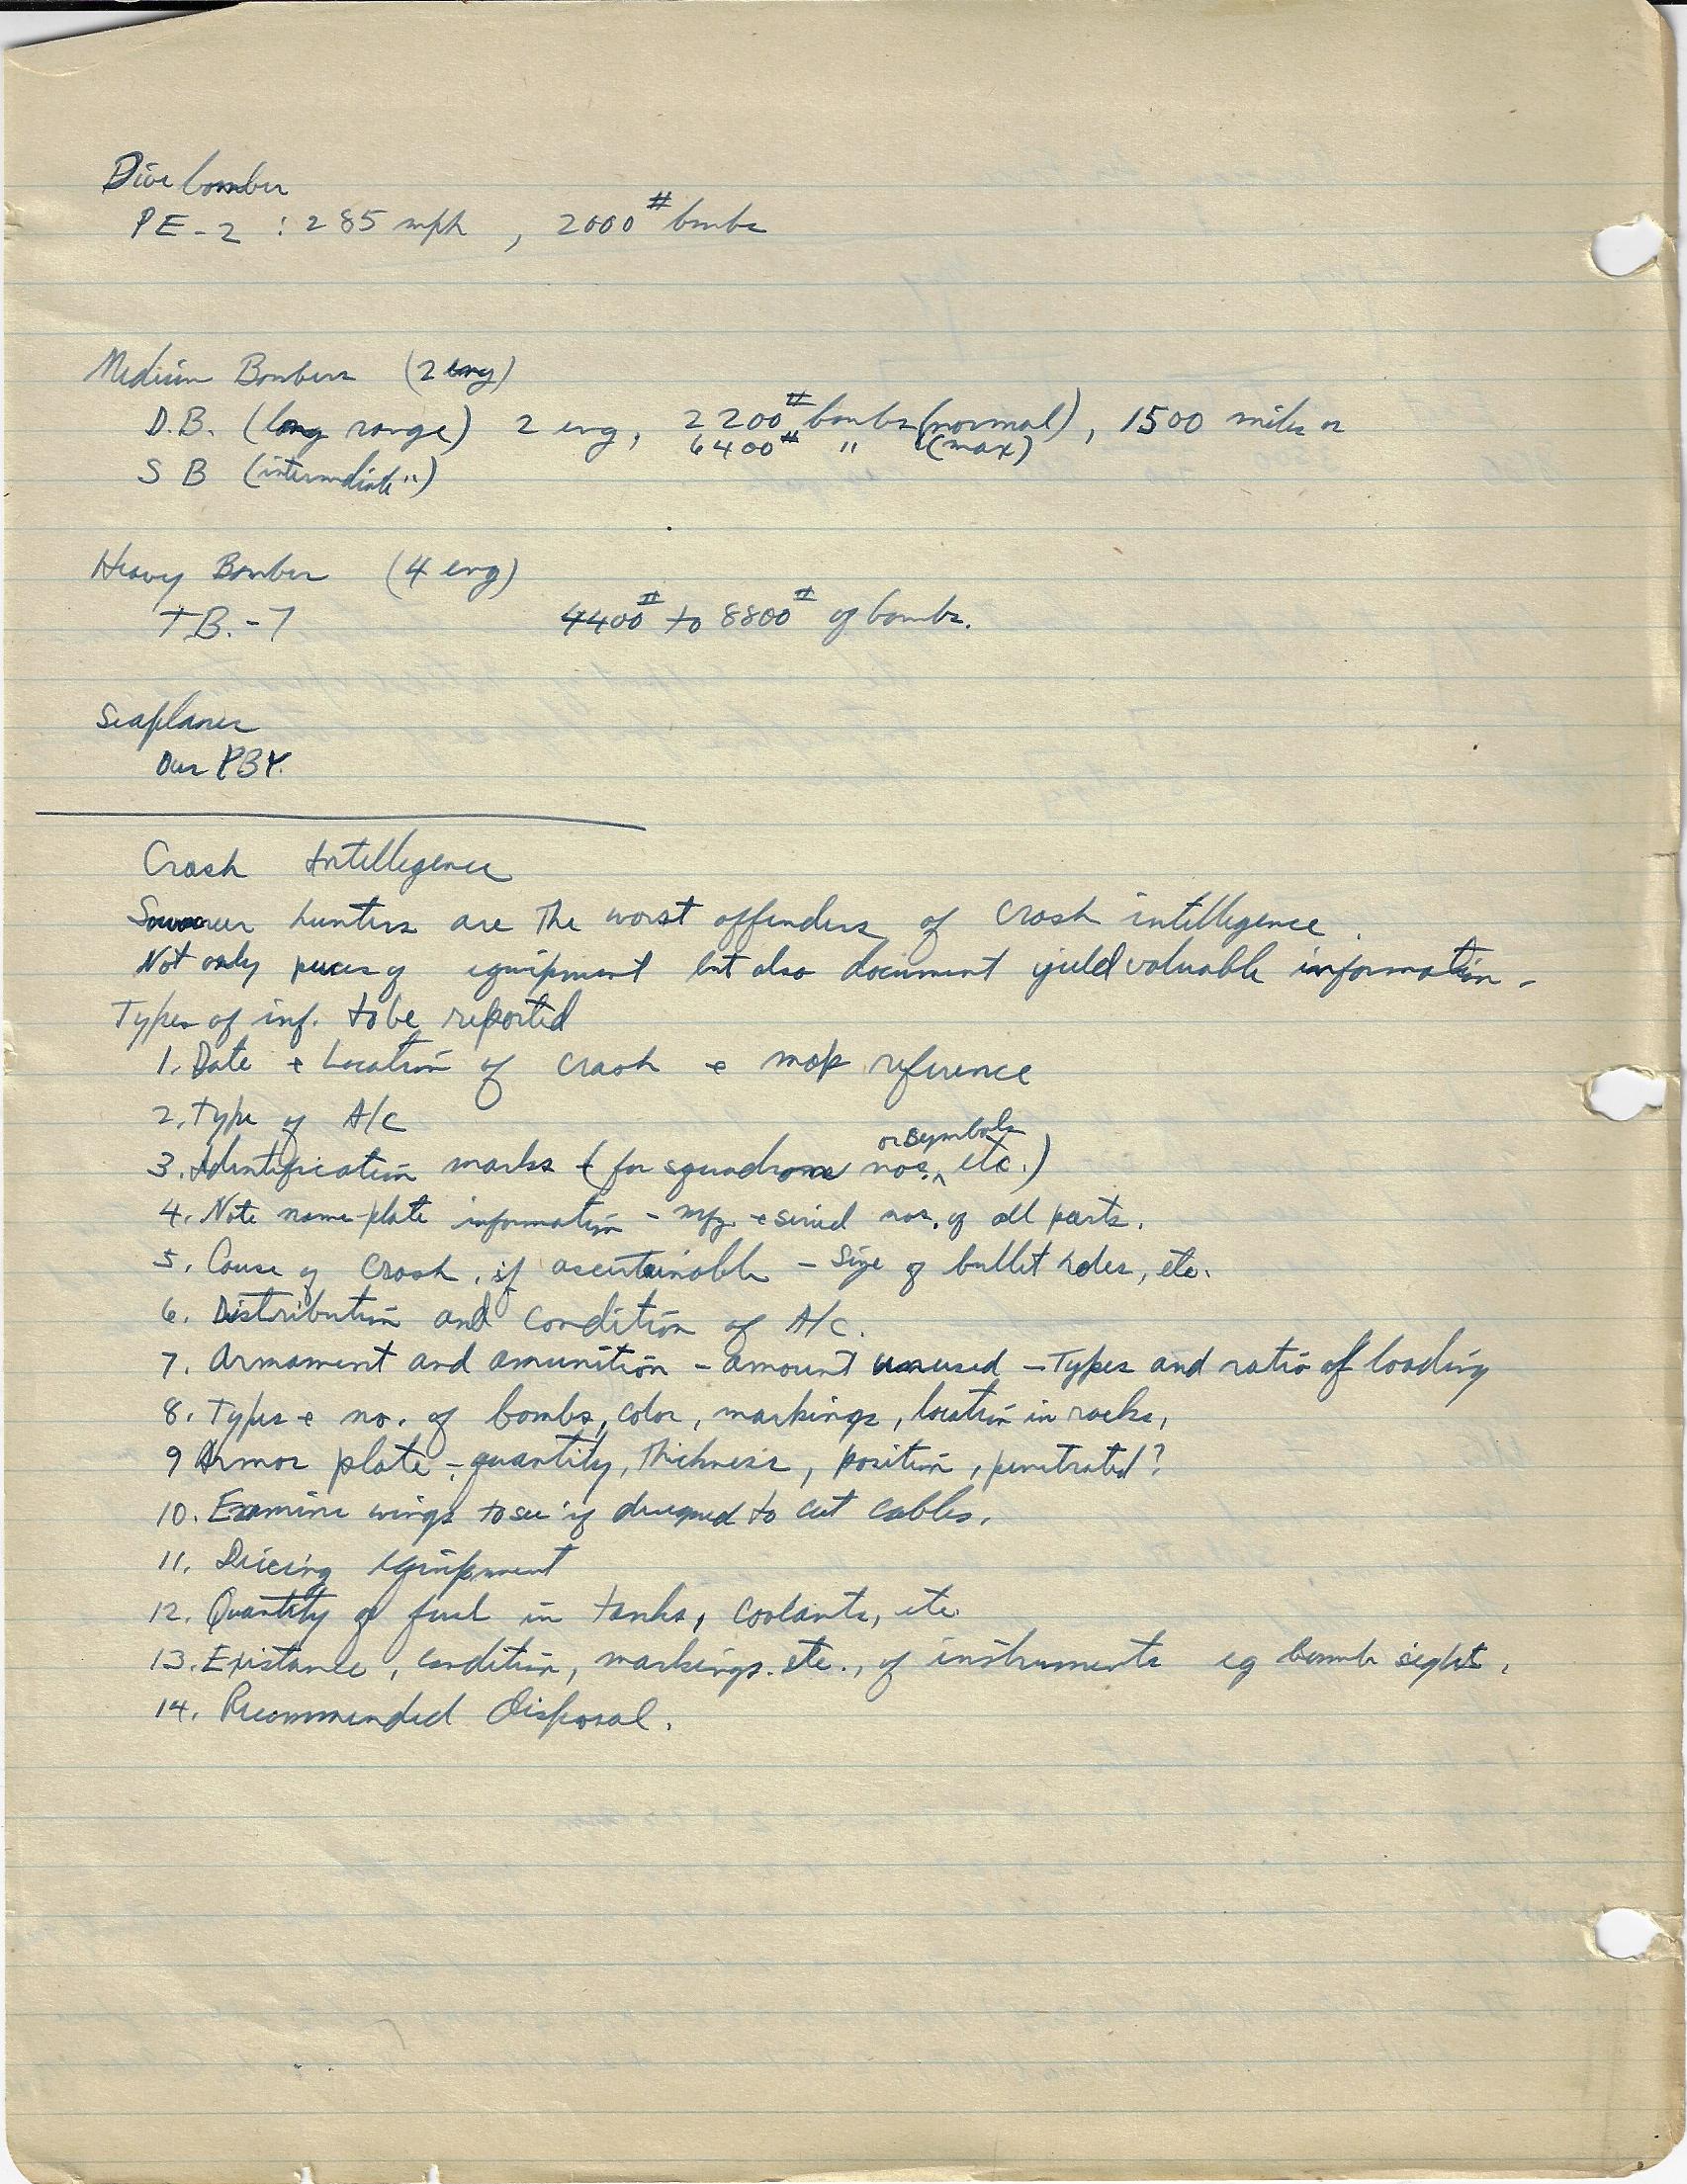 Dive bomber
PE-2 : 285 mph , 2000# bombs
Medium Bombers (2 eng)
D.B. (long range) 2 eng, 2200# bombs (normal), 1500 miles
6400# " (max)
S B (intermediate ")
Heavy Bomber (4 eng)
T.B.-7 4400# to 8800# of bombs.
Seaplanes
Our PBY.
Crash Intellegence
hunters are the worst offenders of crash intellegence.
Not only pieces of equipment but also document yield valuable information.
Types of inf. to be reported
1. Date + Location of crash + map reference
2. Type of A/C
or symbols
3. Identification marks (for squadron nos. ^ etc.)
4. Note name-plate information - mfg. + serial nos. of all parts.
5. Cause of crash, if ascertainable - Size of bullet holes, etc.
6. Distribution and condition of A/C.
7. Armament and amunition - amount unused - Types and ratio of loading
8. Types + no. of bombs, color, markings, location in racks,
9 Armor plate - quantity, Thickness, position, penetrated?
10. Examine wings to see if designed to cut cables.
11. Deicing equipment
12. Quantity of fuel in tanks, coolants, etc.
13. Existance, condition, markings. etc., of instruments eg bomb sight.
14. Recommended Disposal.